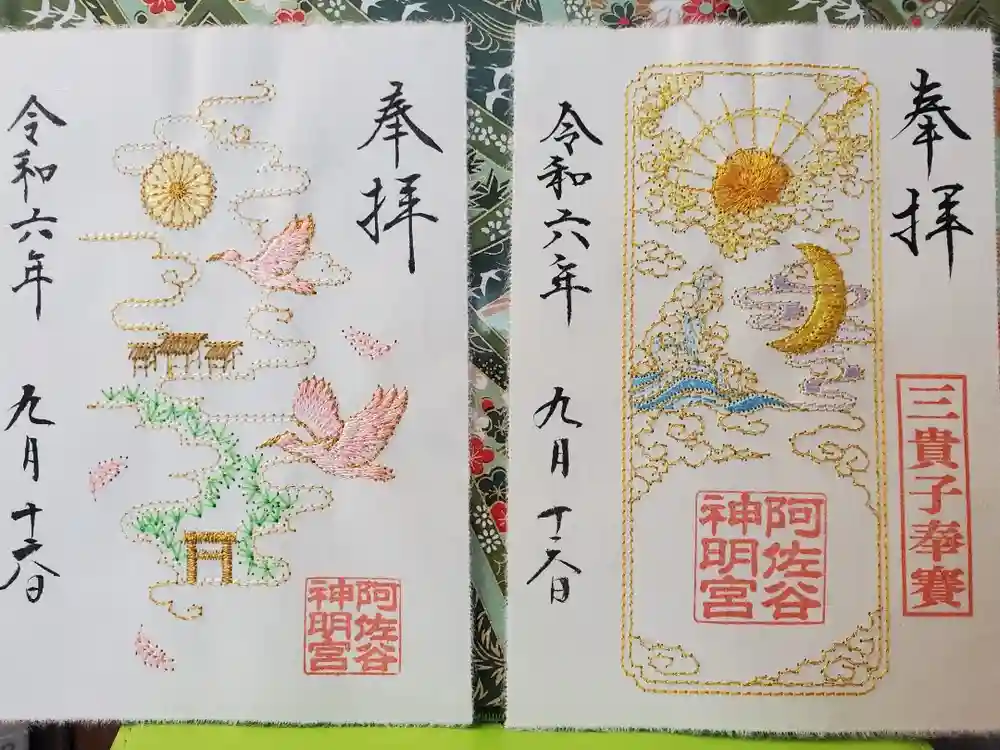 奉拝
令和六年 九月 十六日
阿佐谷
神明宮
奉拝
三貴子奉賽
令和六年 九月 十六日
阿佐谷
神明宮